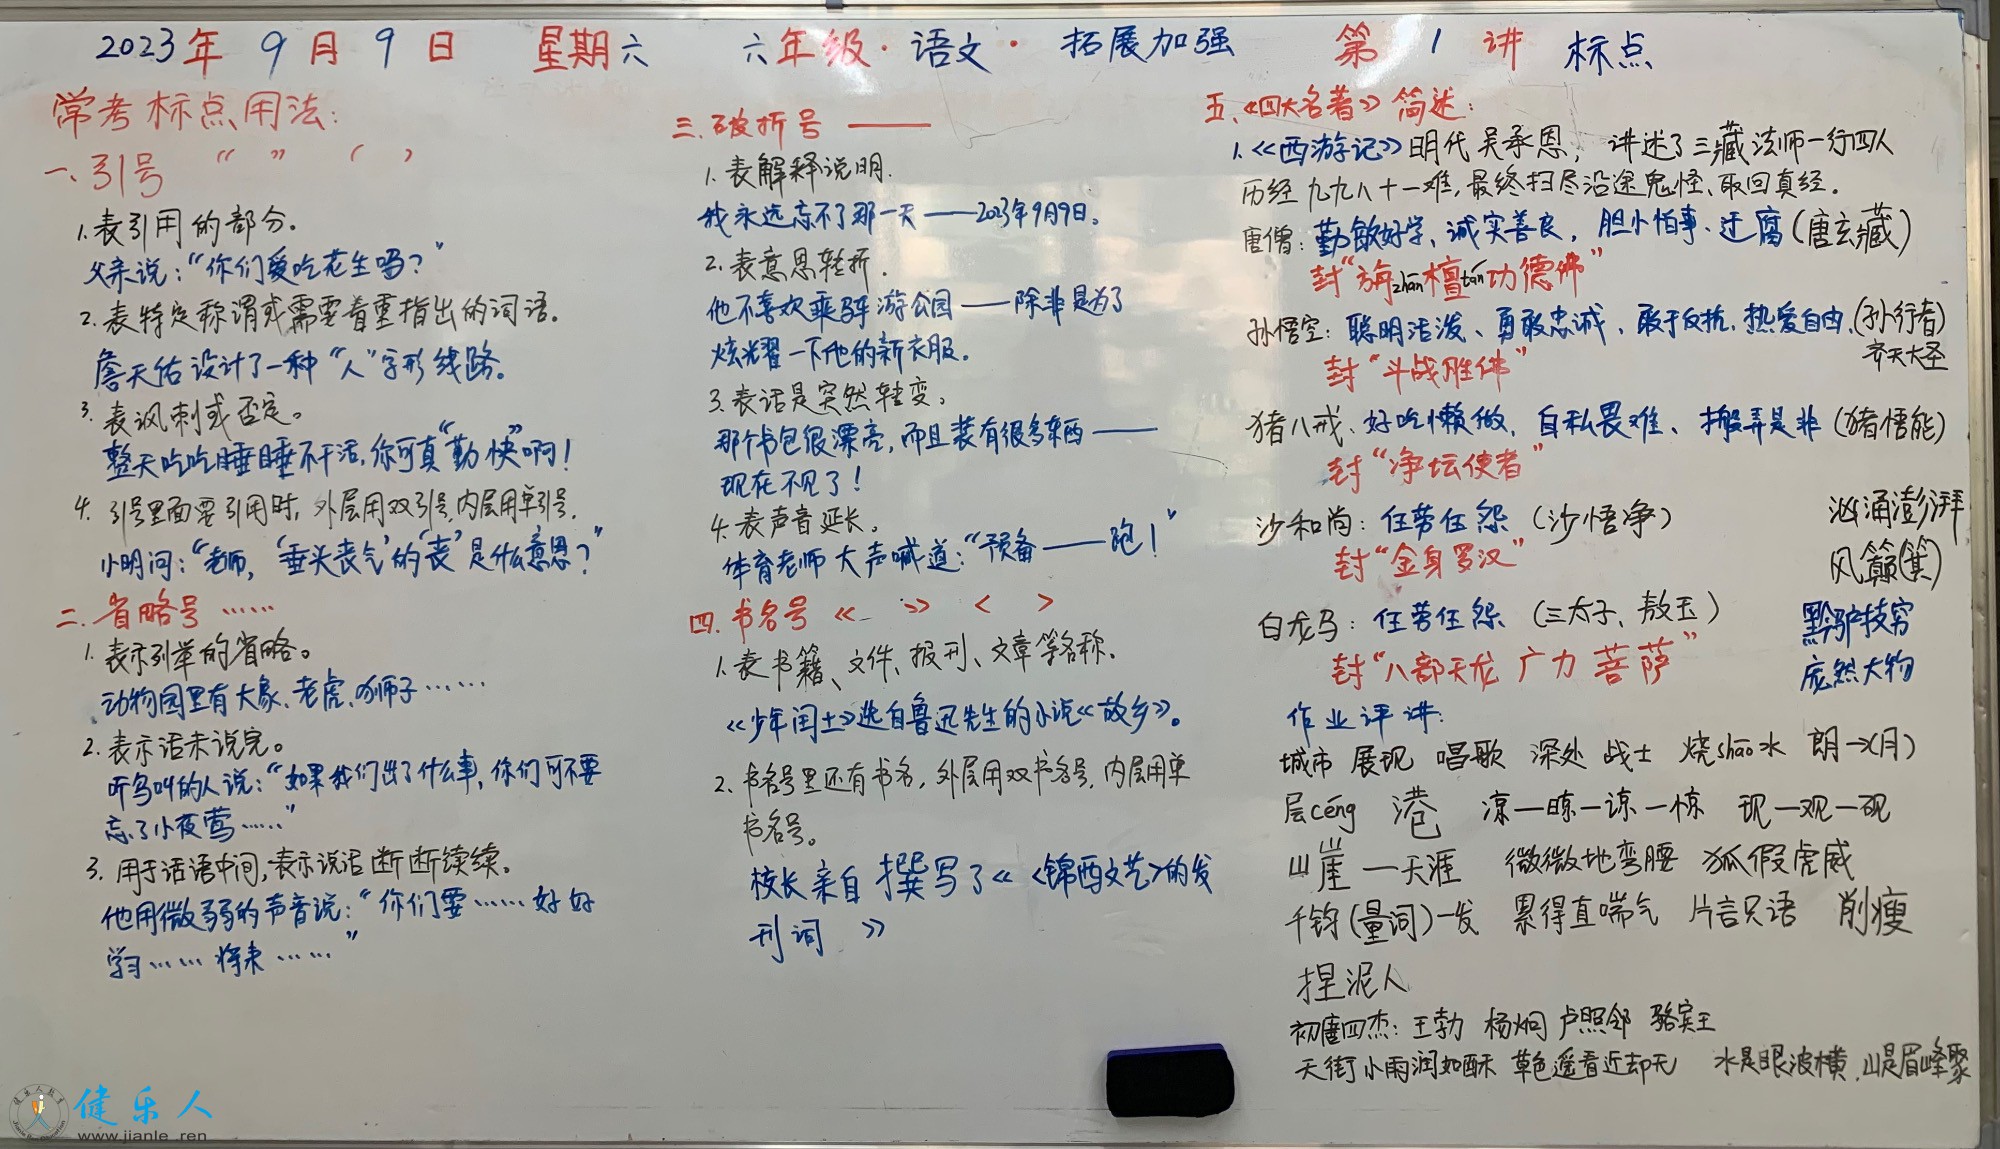 2023年9月9日 星期六 六年级·语文·拓展加强 第1讲 标点
常考标点用法:
一、引号 “ ” ‘ ’
1.表引用的部分。
父亲说:“你们爱吃花生吗?”
2.表特定称谓或需要着重指出的词语。
詹天佑设计了一种“人”字形线路。
3.表讽刺或否定。
整天吃吃睡睡不干活,你可真“勤快”啊!
4.引号里面要引用时,外层用双引号,内层用单引号.
小明问:“老师,‘垂头丧气’的‘丧’是什么意思?”
二.省略号 ……
1.表示列举的省略。
动物园里有大象、老虎、狮子……
2.表示话未说完。
听鸟叫的人说:“如果我们出了什么事,你们可不要
忘了小夜莺……”
3.用于话语中间,表示说话断断续续。
他用微弱的声音说:“你们要……好好
学习……将来……”
三.破折号 ——
1.表解释说明.
我永远忘不了那一天——2023年9月9日。
2.表意思转折.
他不喜欢乘车游公园——除非是为了
炫耀一下他的新衣服。
3.表话是突然转变。
那个书包很漂亮,而且装有很多东西——
现在不见了!
4.表声音延长。
体育老师大声喊道:“预备——跑!”
四.书名号 《 》 〈 〉
1.表书籍、文件、报刊、文章等名称.
《少年闰土》选自鲁迅先生的小说《故乡》。
2.书名号里还有书名,外层用双书名号,内层用单
书名号。
校长亲自撰写了《〈锦西文艺〉的发
刊词 》
五、《四大名著》简述:
1.《西游记》明代吴承恩, 讲述了三藏法师一行四人
历经九九八十一难,最终扫尽沿途鬼怪、取回真经.
唐僧:勤敏好学、诚实善良,胆小怕事、迂腐(唐玄藏)
封“旃zhān檀tán功德佛”
孙悟空:聪明活泼、勇敢忠诚,敢于反抗,热爱自由,(孙行者)
齐天大圣
封“斗战胜佛”
猪八戒、好吃懒做,自私畏难、搬弄是非(猪悟能)
封“净坛使者”
沙和尚:任劳任怨(沙悟净)
封“金身罗汉”
白龙马:任劳任怨(三太子、敖玉)
封“八部天龙广力菩萨”
汹涌澎湃
风簸(箕)
黔驴技穷
庞然大物
作业评讲:
城市 展现 唱歌 深处 战士 烧shāo水 朗→(月)
层céng 港 凉—晾—谅—惊 现—观—砚
山崖—天涯 微微地弯腰 狐假虎威
千钧(量词)一发 累得直喘气 片言只语 削瘦
捏泥人
初唐四杰:王勃 杨炯 卢照邻 骆宾王
天街小雨润如酥 草色遥看近却无 水是眼波横,山是眉峰聚
健乐人
www.jianle.ren